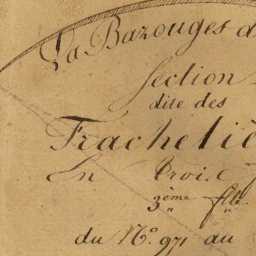 La Bazouges d
Section
dite des
Fracheliè
En Trois
3ème flle
du N° 971 au